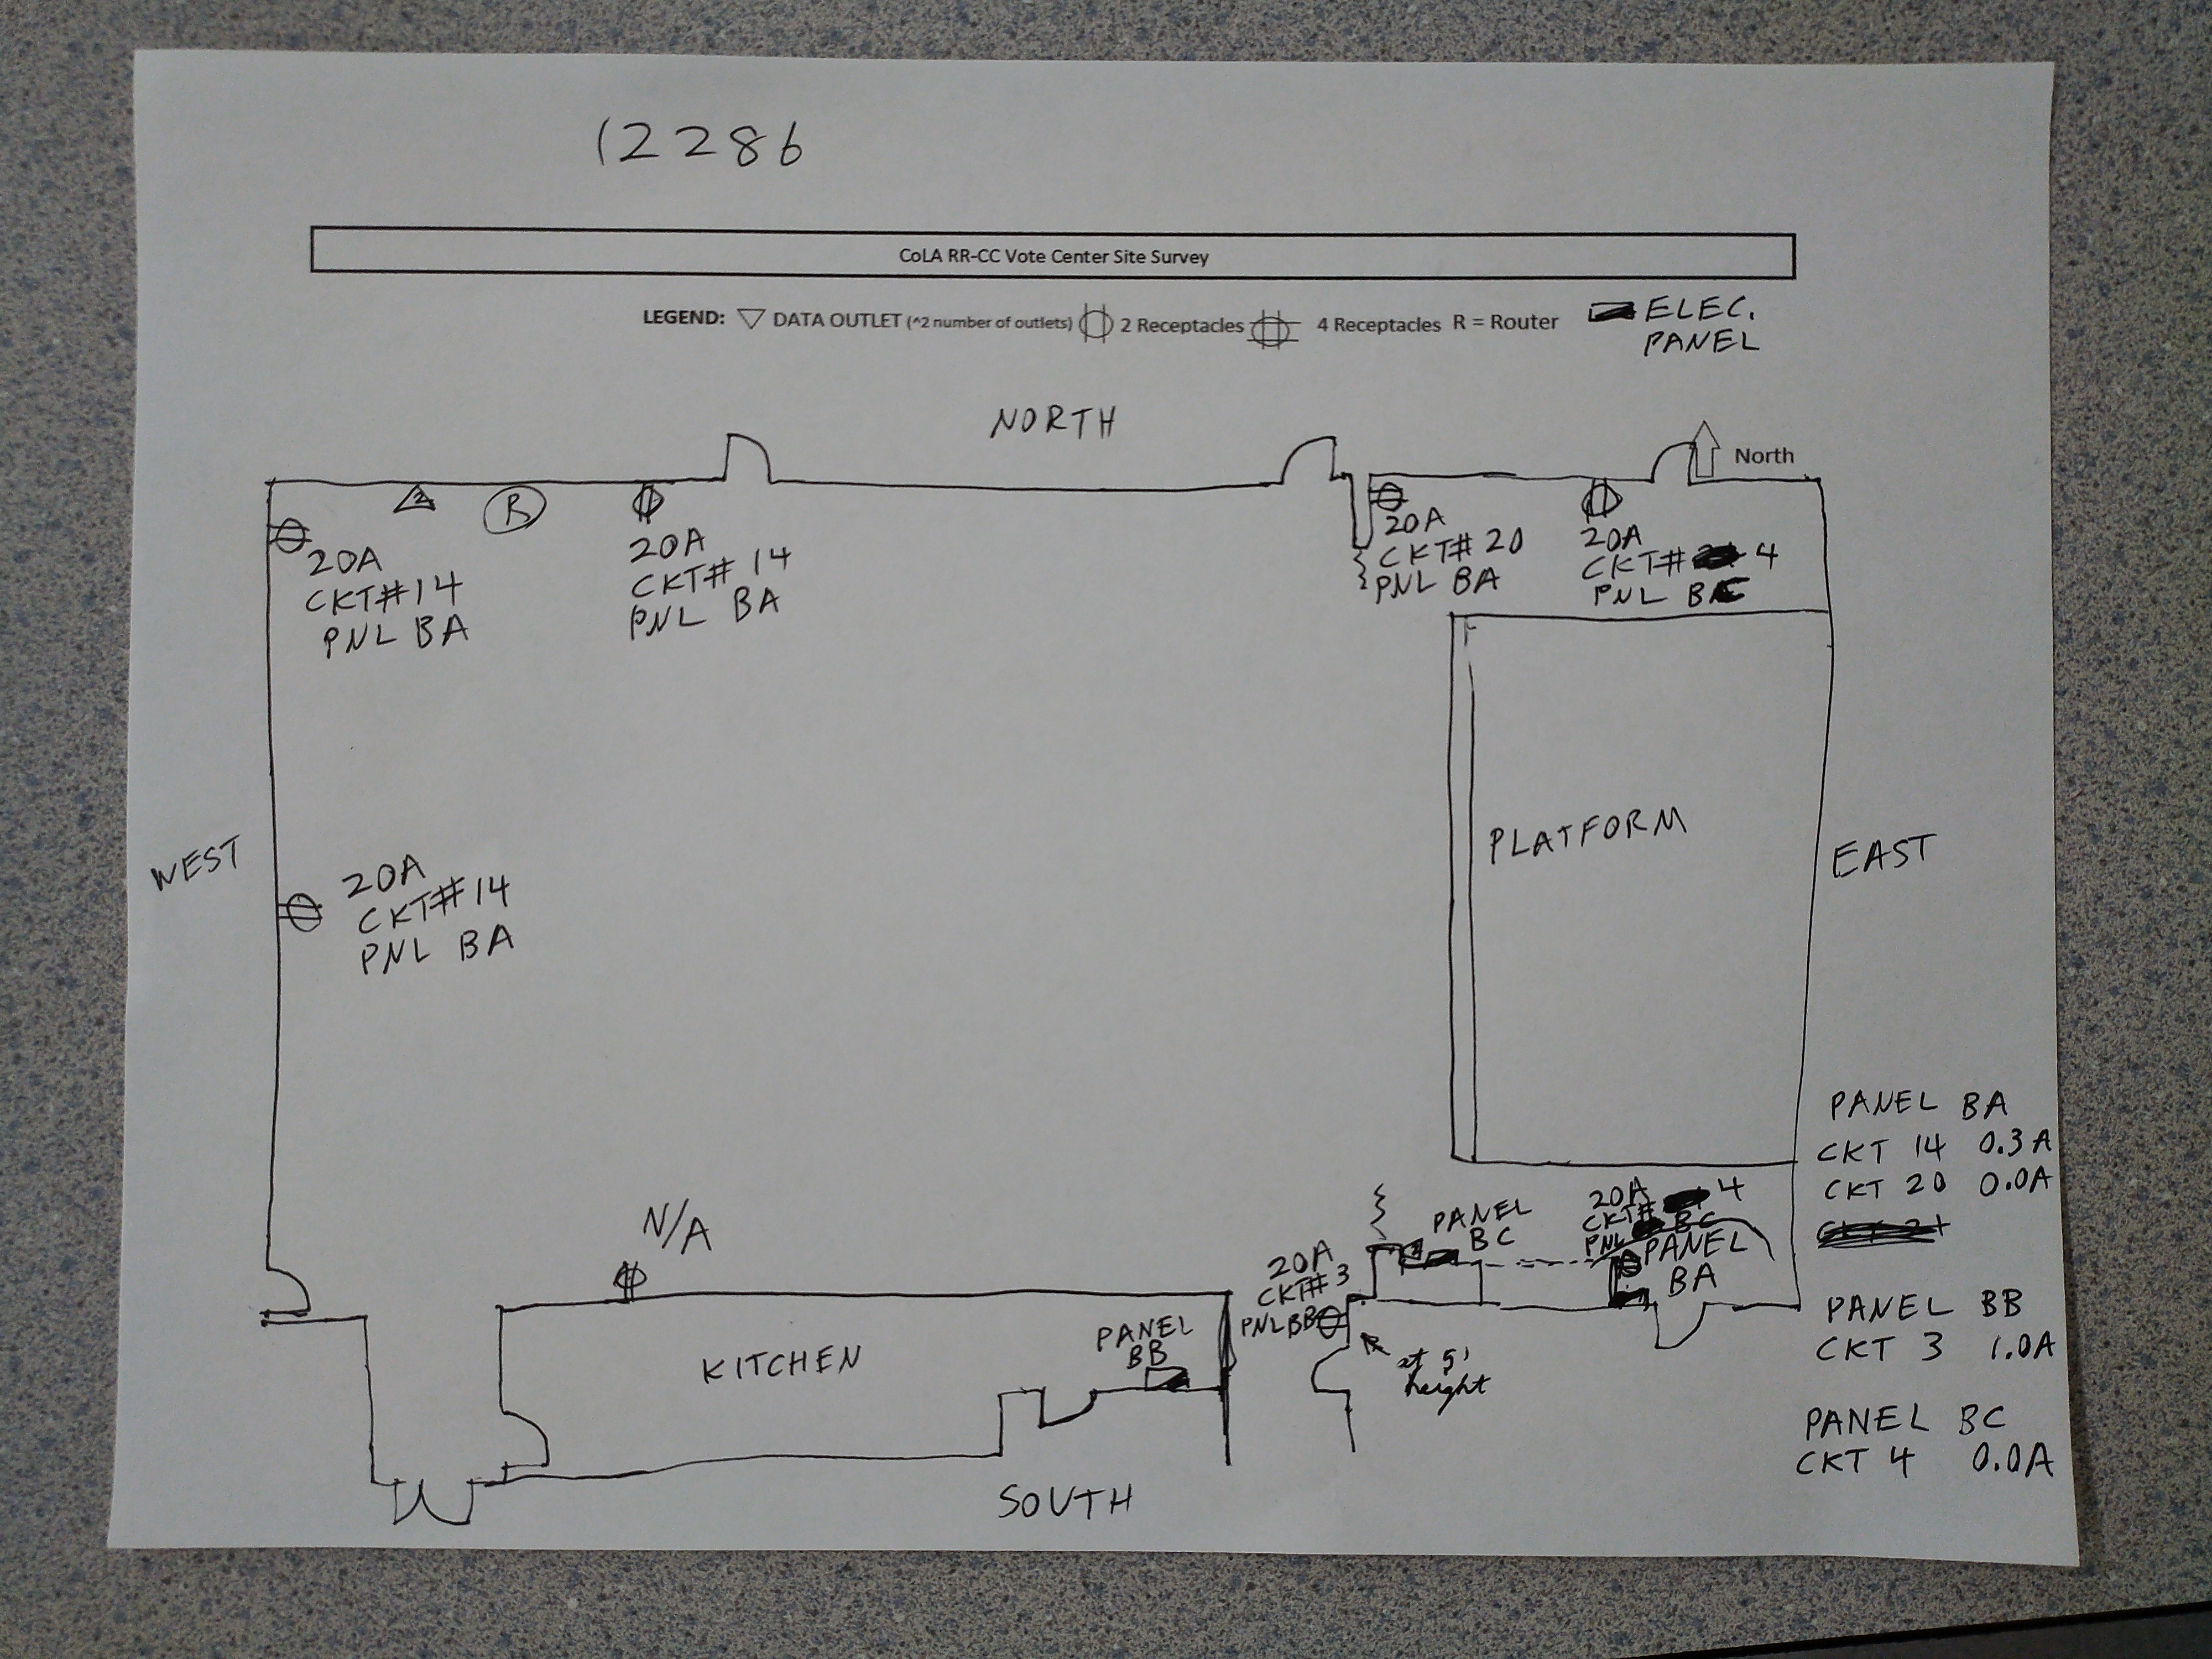 12286
CoLA RR-CC Vote Center Site Survey
LEGEND: DATA OUTLET (^2 number of outlets) 2 Receptacles 4 Receptacles R = Router
ELEC.
PANEL
NORTH
North
2
R
20A
CKT#14
PNL BA
20A
CKT# 14
PNL BA
20A
CKT# 20
PNL BA
20A
CKT# 4
PNL BC
WEST
20A
CKT#14
PNL BA
PLATFORM
EAST
PANEL BA
CKT 14 0.3A
CKT 20 0.0A
PANEL BB
CKT 3 1.0A
PANEL BC
CKT 4 0.0A
N/A
KITCHEN
PANEL
BB
20A
CKT# 3
PNL BB
at 5'
height
PANEL
BC
20A
CKT# 4
PNL BC
PANEL
BA
SOUTH